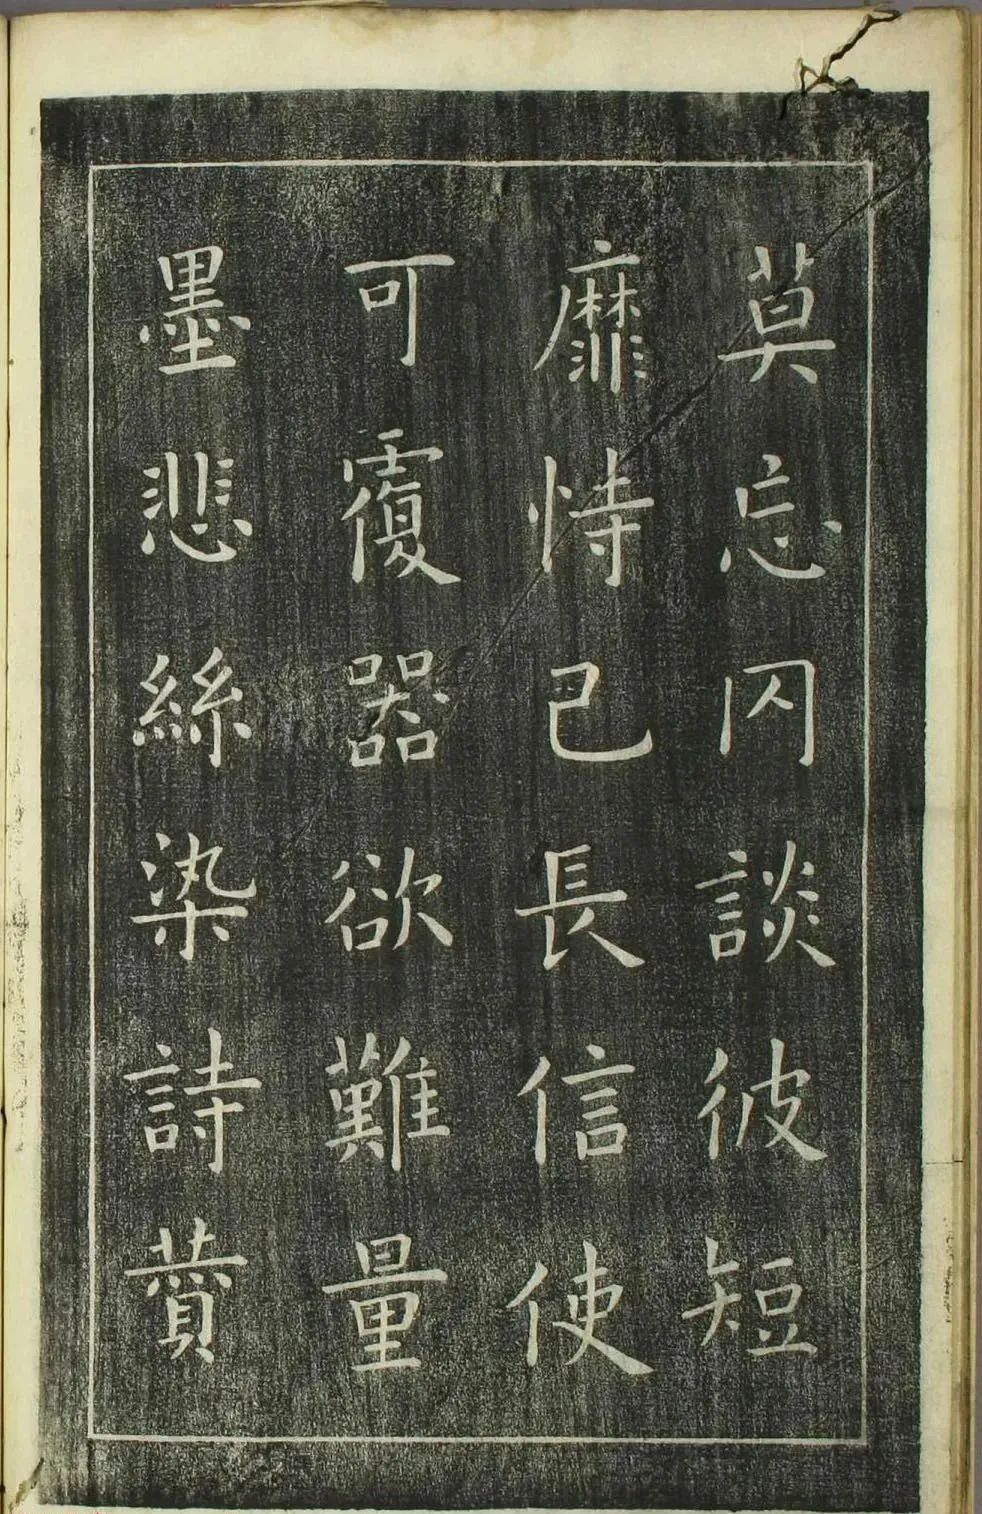 莫忘罔談彼短
靡恃己長信使
可覆器欲難量
墨悲絲染詩贊